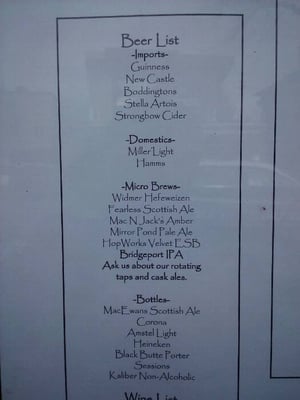 Beer List
-Imports-
Guinness
New Castle
Boddingtons
Stella Artois
Strongbow Cider
-Domestics-
Miller Light
Hamms
-Micro Brews-
Widmer Hefeweizen
Fearless Scottish Ale
Mac N Jack's Amber
Mirror Pond Pale Ale
HopWorks Velvet ESB
Bridgeport IPA
Ask us about our rotating
taps and cask ales.
-Bottles-
MacEwans Scottish Ale
Corona
Amstel Light
Heineken
Black Butte Porter
Sessions
Kaliber Non-Alcoholic
Wine List